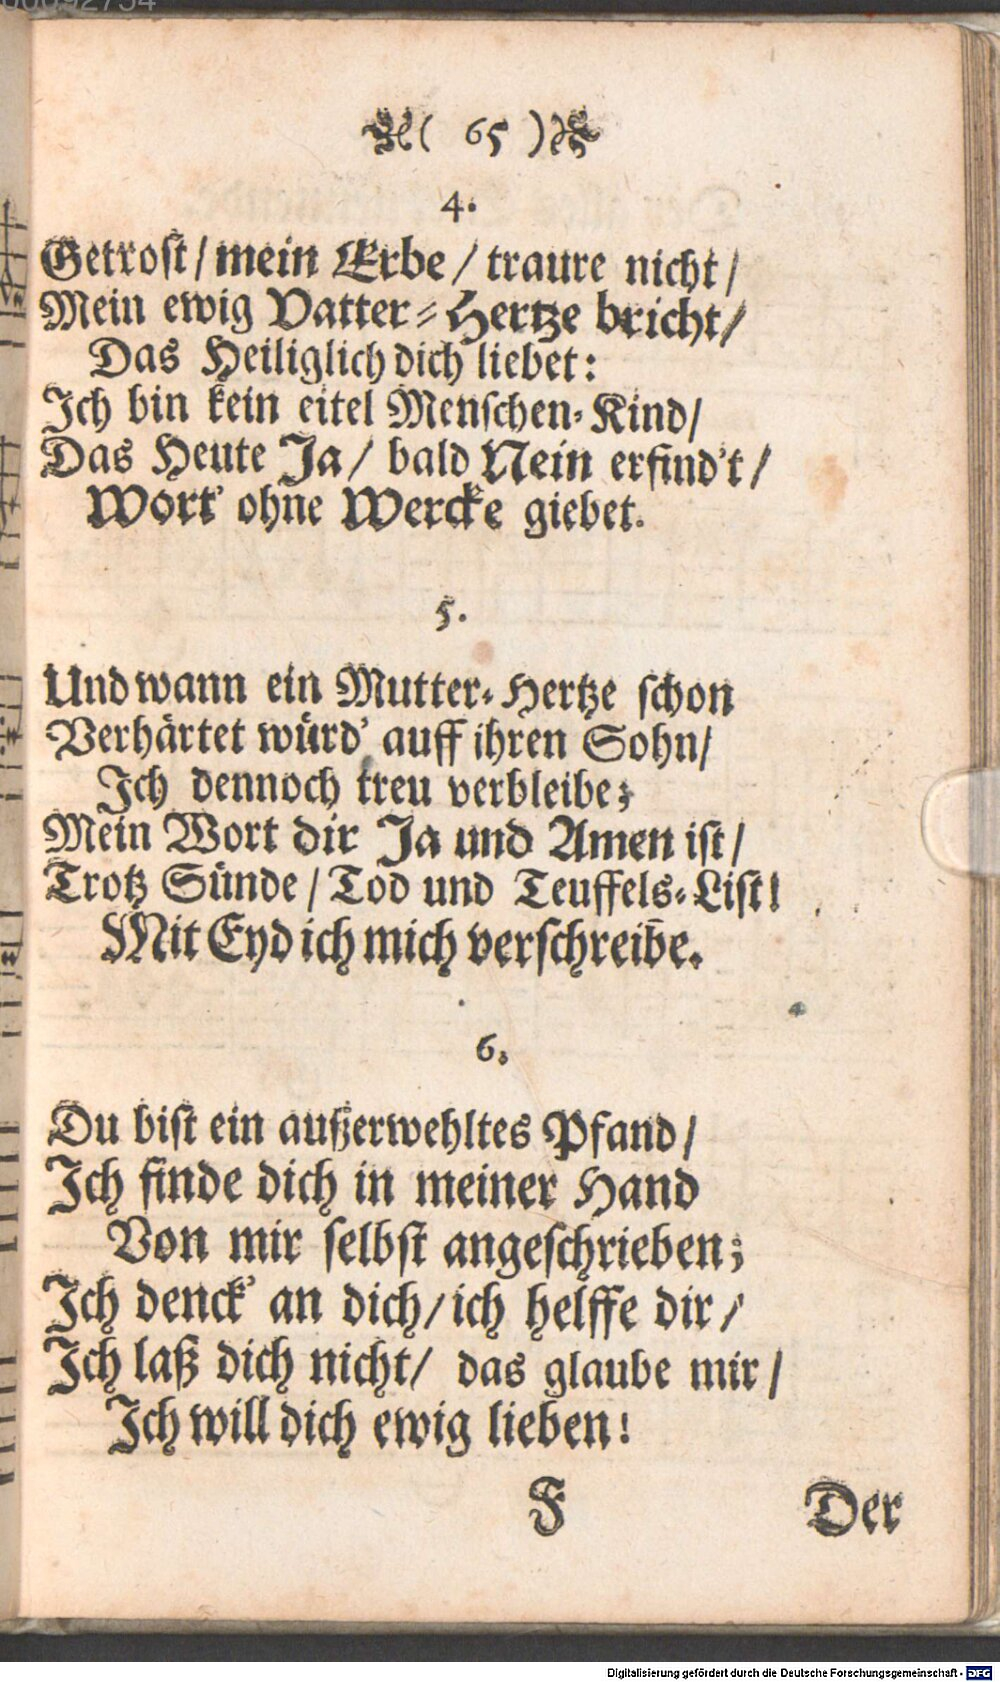 ( 65 )
4.
Getroſt / mein Erbe / traure nicht /
Mein ewig Vatter-Hertze bricht /
Das Heiliglich dich liebet:
Ich bin kein eitel Menſchen-Kind /
Das Heute Ja / bald Nein erfind't /
Wort' ohne Wercke giebet.
5.
Und wann ein Mutter-Hertze ſchon
Verhärtet würd' auff ihren Sohn /
Ich dennoch treu verbleibe;
Mein Wort dir Ja und Amen iſt /
Trotz Sünde / Tod und Teuffels-Liſt!
Mit Eyd ich mich verſchreibe.
6.
Du biſt ein außerwehltes Pfand /
Ich finde dich in meiner Hand
Von mir ſelbſt angeſchrieben;
Ich denck' an dich / ich helffe dir /
Ich laß dich nicht / das glaube mir /
Ich will dich ewig lieben!
F Der
Digitalisierung gefördert durch die Deutsche Forschungsgemeinschaft - DFG